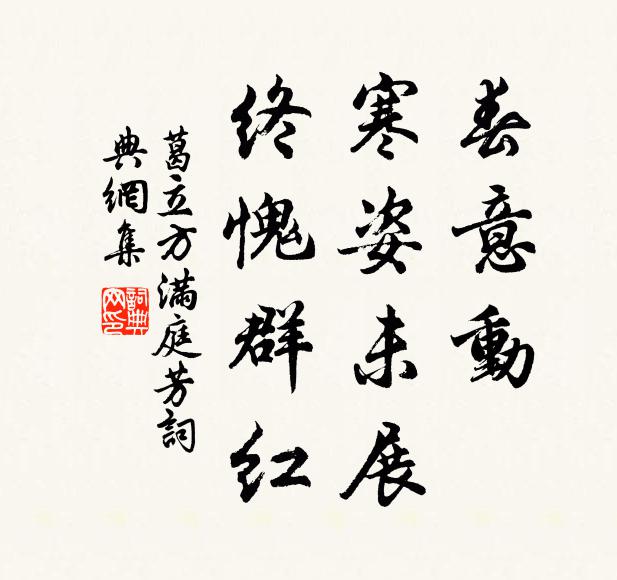 春意動
寒姿未展
終愧群紅
葛立方滿庭芳詞
典網集
詞典網印